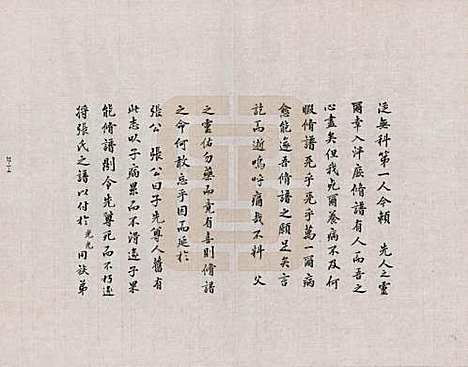 泛無科第一人今賴　先人之靈
爾幸入泮底脩譜有人而吾之
心盡矣但我

爾養病不及何
暇脩譜死乎死乎萬一爾病
愈能遂吾脩譜之願足矣言
訖而逝嗚呼痛哉不料　父
之靈佑勿藥而竟有喜則脩譜
之命何敢忘乎因而延於
張公　張公曰子先尊人舊有
此志以子病果而不得遂子果
能脩譜則令先尊死而不朽遂
將張氏之譜以付於　同族弟